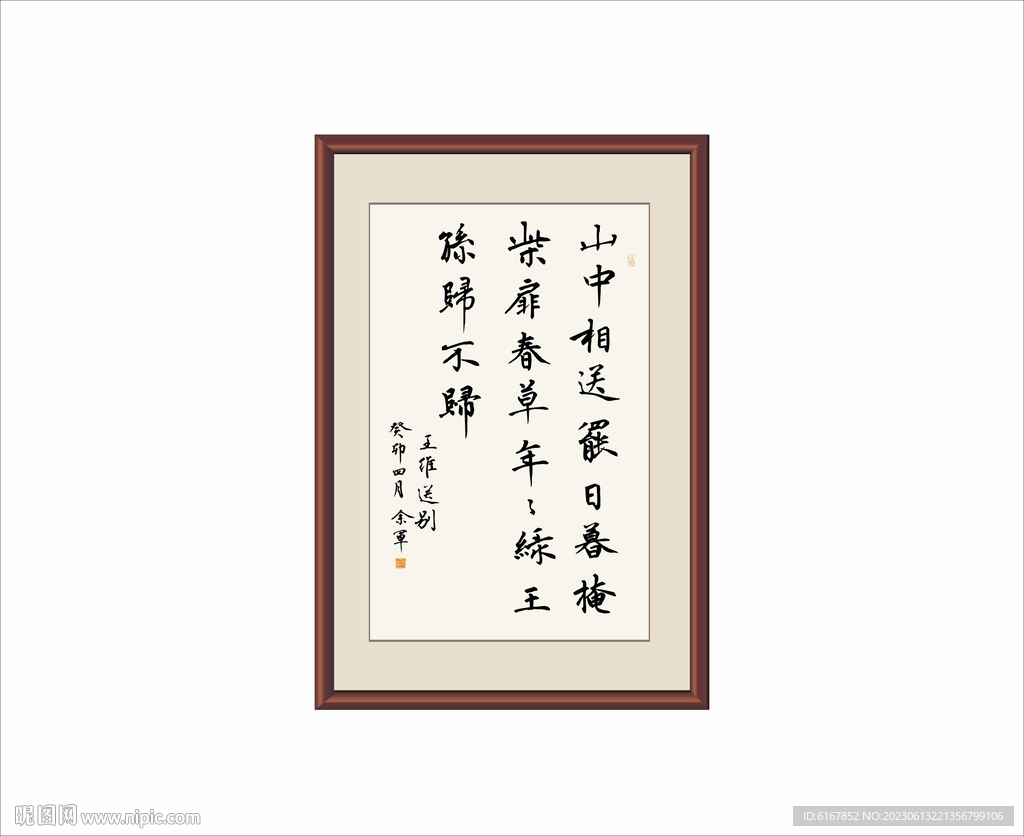 山中相送罷日暮掩
柴扉春草年〻綠王
孫歸不歸
王維送别
癸卯四月余軍
昵图网 www.nipic.com
ID:6167852 NO:20230613221356799106